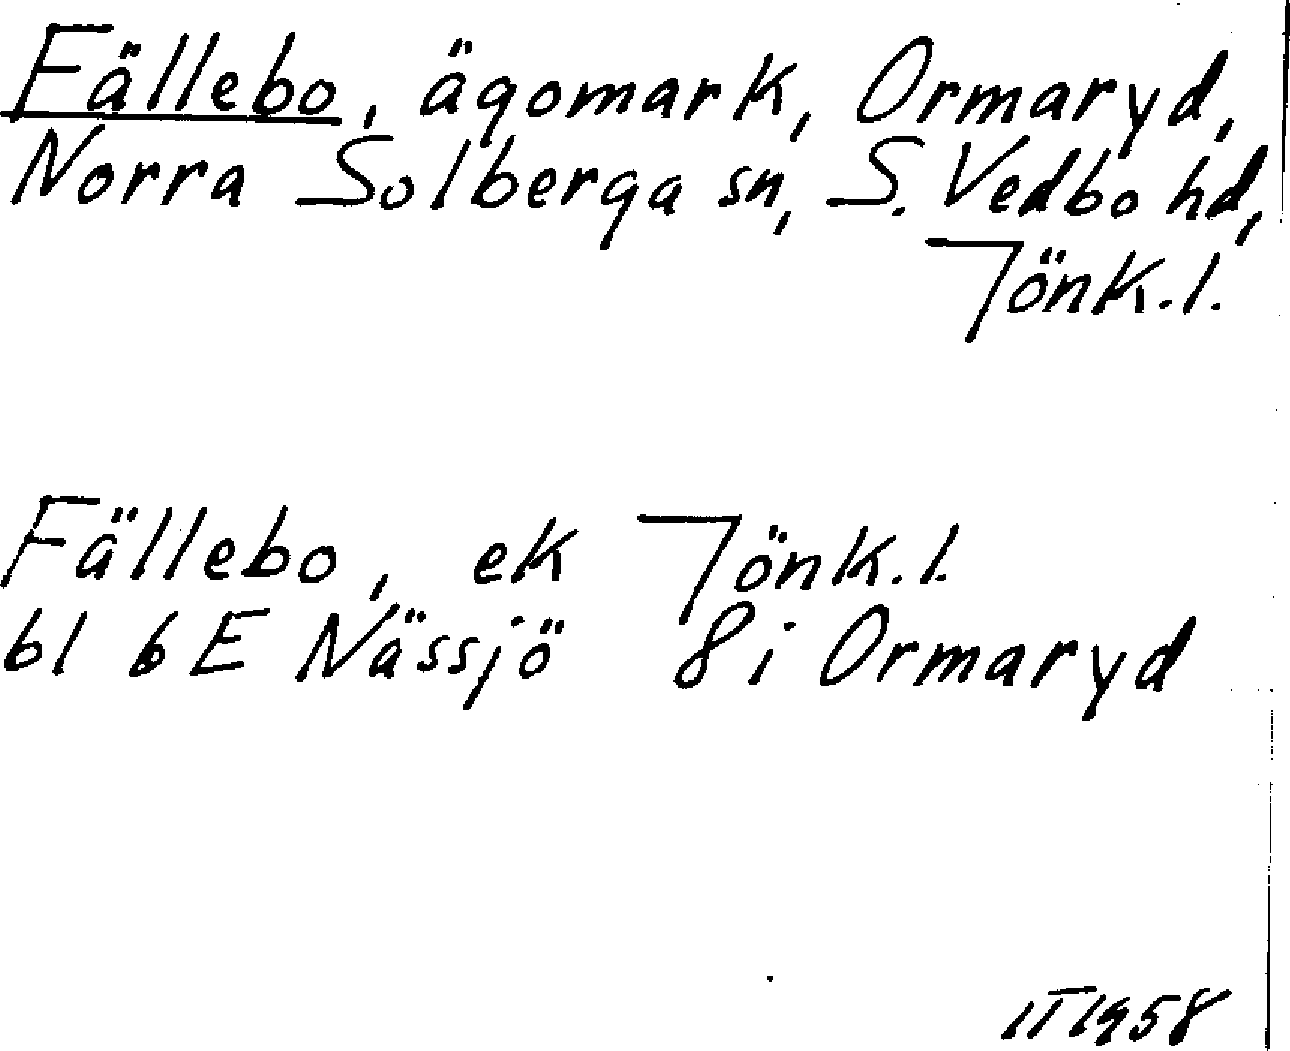 Fällebo, ägomark, Ormaryd,
Norra Solberga sn, S. Vedbo hd,
Jönk.l.
Fällebo, ek Jönk.l.
bl 6 E Nässjö 8 i Ormaryd
IT 1958